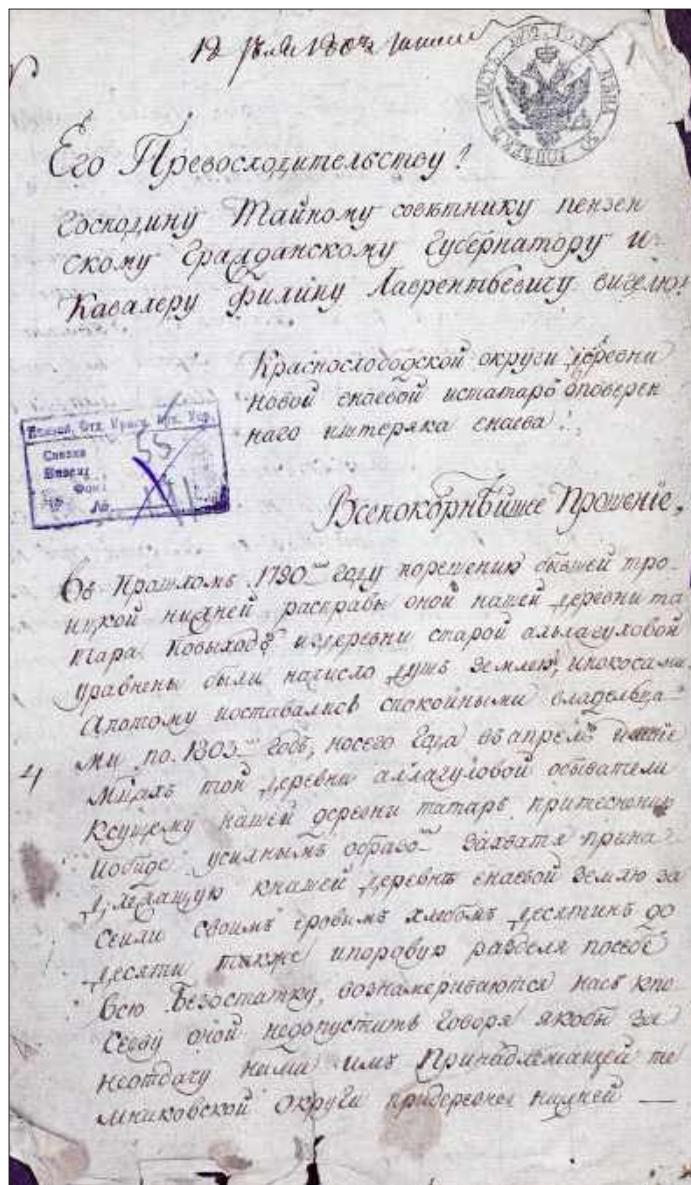 1
Его Превосходительству!
Господину Тайному советнику пензен
скому Гражданскому Губернатору и
Кавалеру Филипу Лаврентьевичу вигелю!
Краснослободской округи деревни
новой енаевой истатаръ поверен
наго иштеряка енаева!
Всепокорнѣйшее Прошеніе,
Въ прошломъ 1790 году порешению бывшей тро
ицкой нижней расправы оной нашей деревни та
тара повыходѣ издеревни старой
уравнены были начисло душъ землею, ипокосами
Апотому иоставались спокойными владельца
ми по 1803 годъ, носего года въ апрелѣ
мцахъ той деревни аллагуловой обыватели
Ксущему нашей деревни татаръ притеснению
иобиде усилнымъ образо захватя прина
длежащую кнашей деревнѣ енаевой землю за
сеяли своимъ еровимъ хлебомъ десятинъ до
десяти также ипаровую разделя посебѣ
всю Безостатку, вознамериваются насъ кпо
севу оной недопустить говоря якобы за
неотдачу нами имъ Принадлежащей те
мниковской округи придеревнѣ нижней —